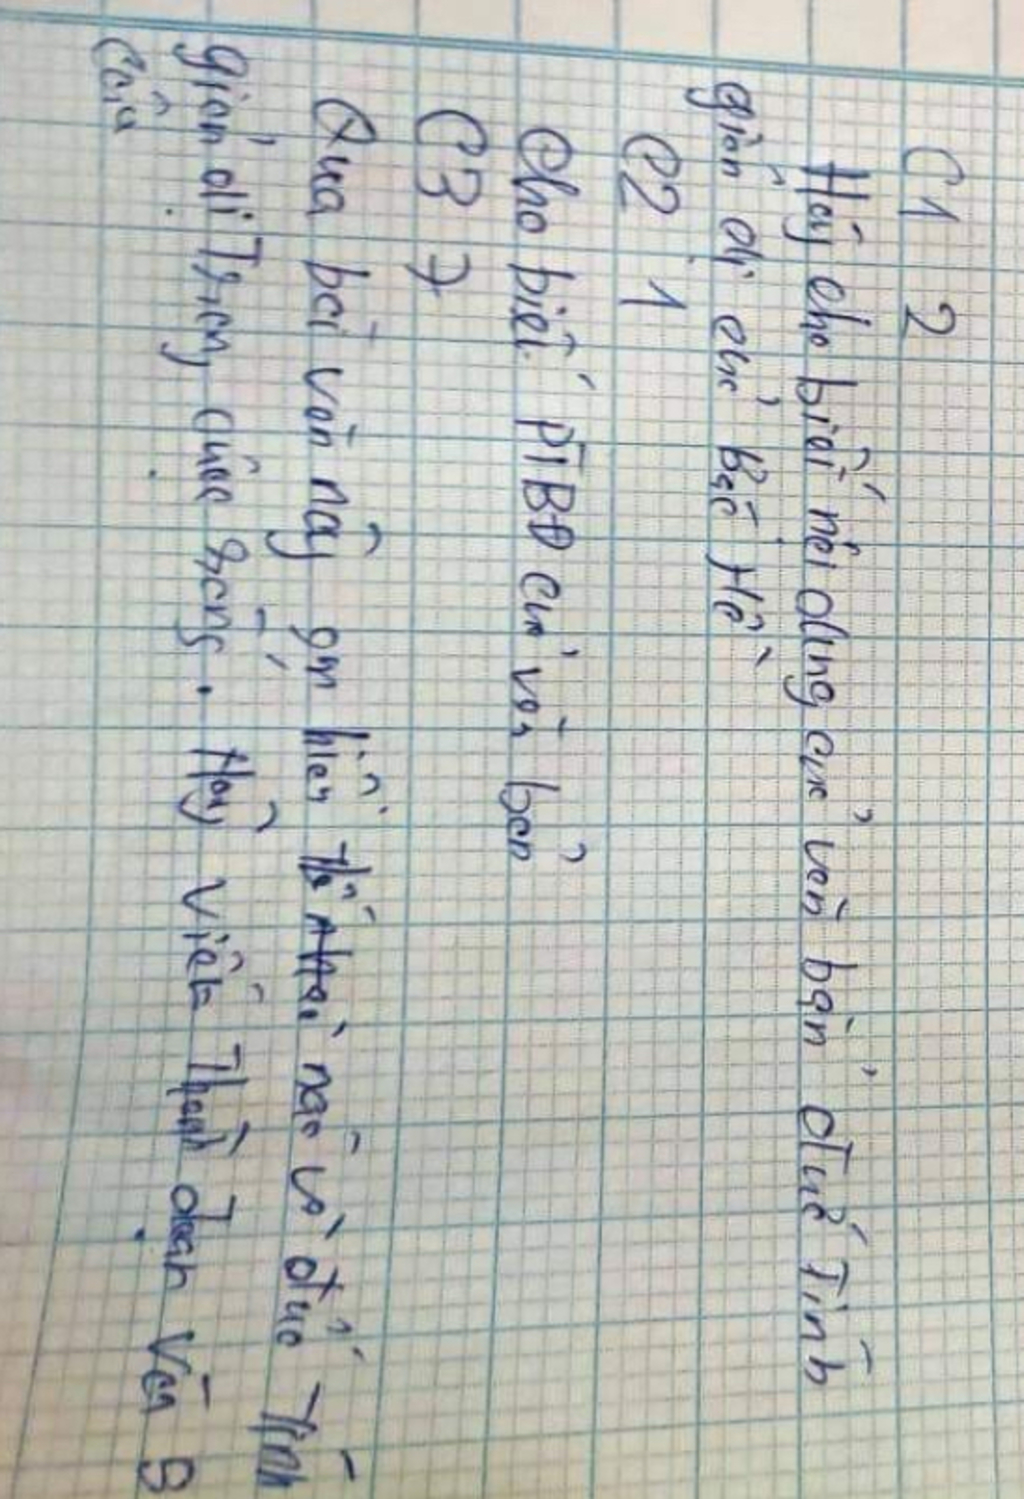 C1 2
Hãy cho biết nội dung của văn bản đức tính
giản dị của Bác Hồ
C2 1
Cho biết PTBĐ của văn bản
C3 7
Qua bài văn này em hiểu thế nào về đức tính
giản dị trong cuộc sống. Hãy viết thành đoạn văn 8
câu